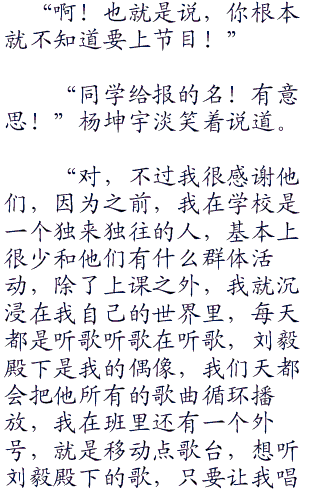 “啊！也就是说，你根本
就不知道要上节目！”
“同学给报的名！有意
思！”杨坤宇淡笑着说道。
“对，不过我很感谢他
们，因为之前，我在学校是
一个独来独往的人，基本上
很少和他们有什么群体活
动，除了上课之外，我就沉
浸在我自己的世界里，每天
都是听歌听歌在听歌，刘毅
殿下是我的偶像，我们天都
会把他所有的歌曲循环播
放，我在班里还有一个外
号，就是移动点歌台，想听
刘毅殿下的歌，只要让我唱